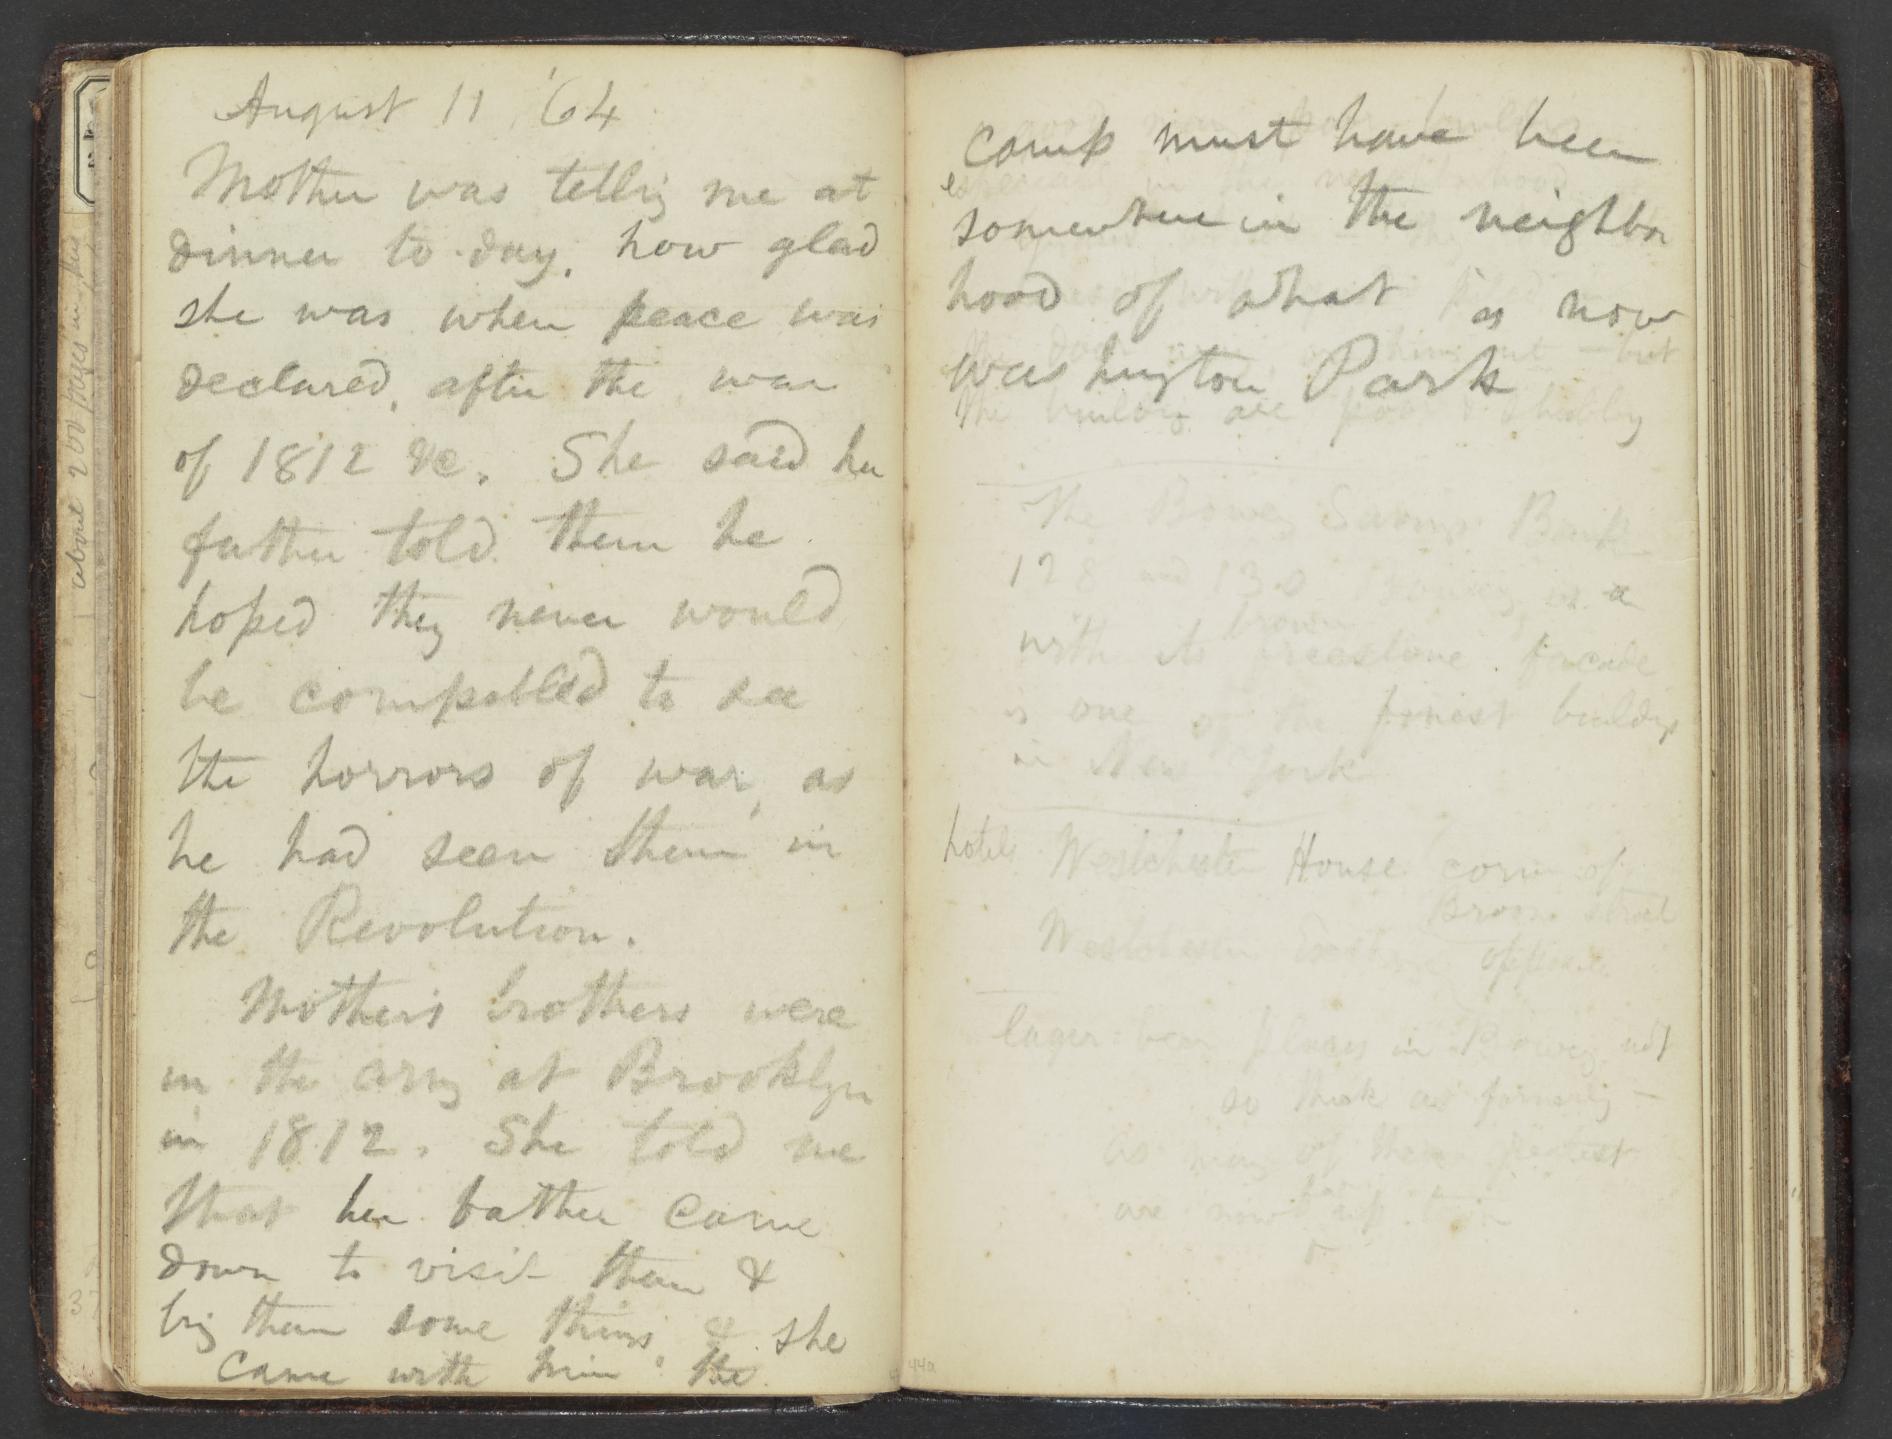 August 11 '64
Mother was tellig me at
dinner to-day, how glad
she was when peace was
declared, after the war
of 1812 &c. She said her
father told them he
hoped they never would
be compelled to see
the horrors of war, as
he had seen them in
the Revolution.
Mother's brothers were
in the army at Brooklyn
in 1812. She told me
that her father came
down to visit them &
brig them some things, & she
came with him the
camp must have been
somewhere in the neighbor
hood of what is now
Washington Park
the buildings are poor & shabby
The Bowery Savings Bank
128 and 130 Bowery is a
brown
with its freestone facade
is one of the finest buildings
in New York
hotels Westchester House corn of
Broom street
Westchester opposite
lager-beer places in Bowery not
so thick as formerly —
as many of them
are now up town
about 200 pages in
44a